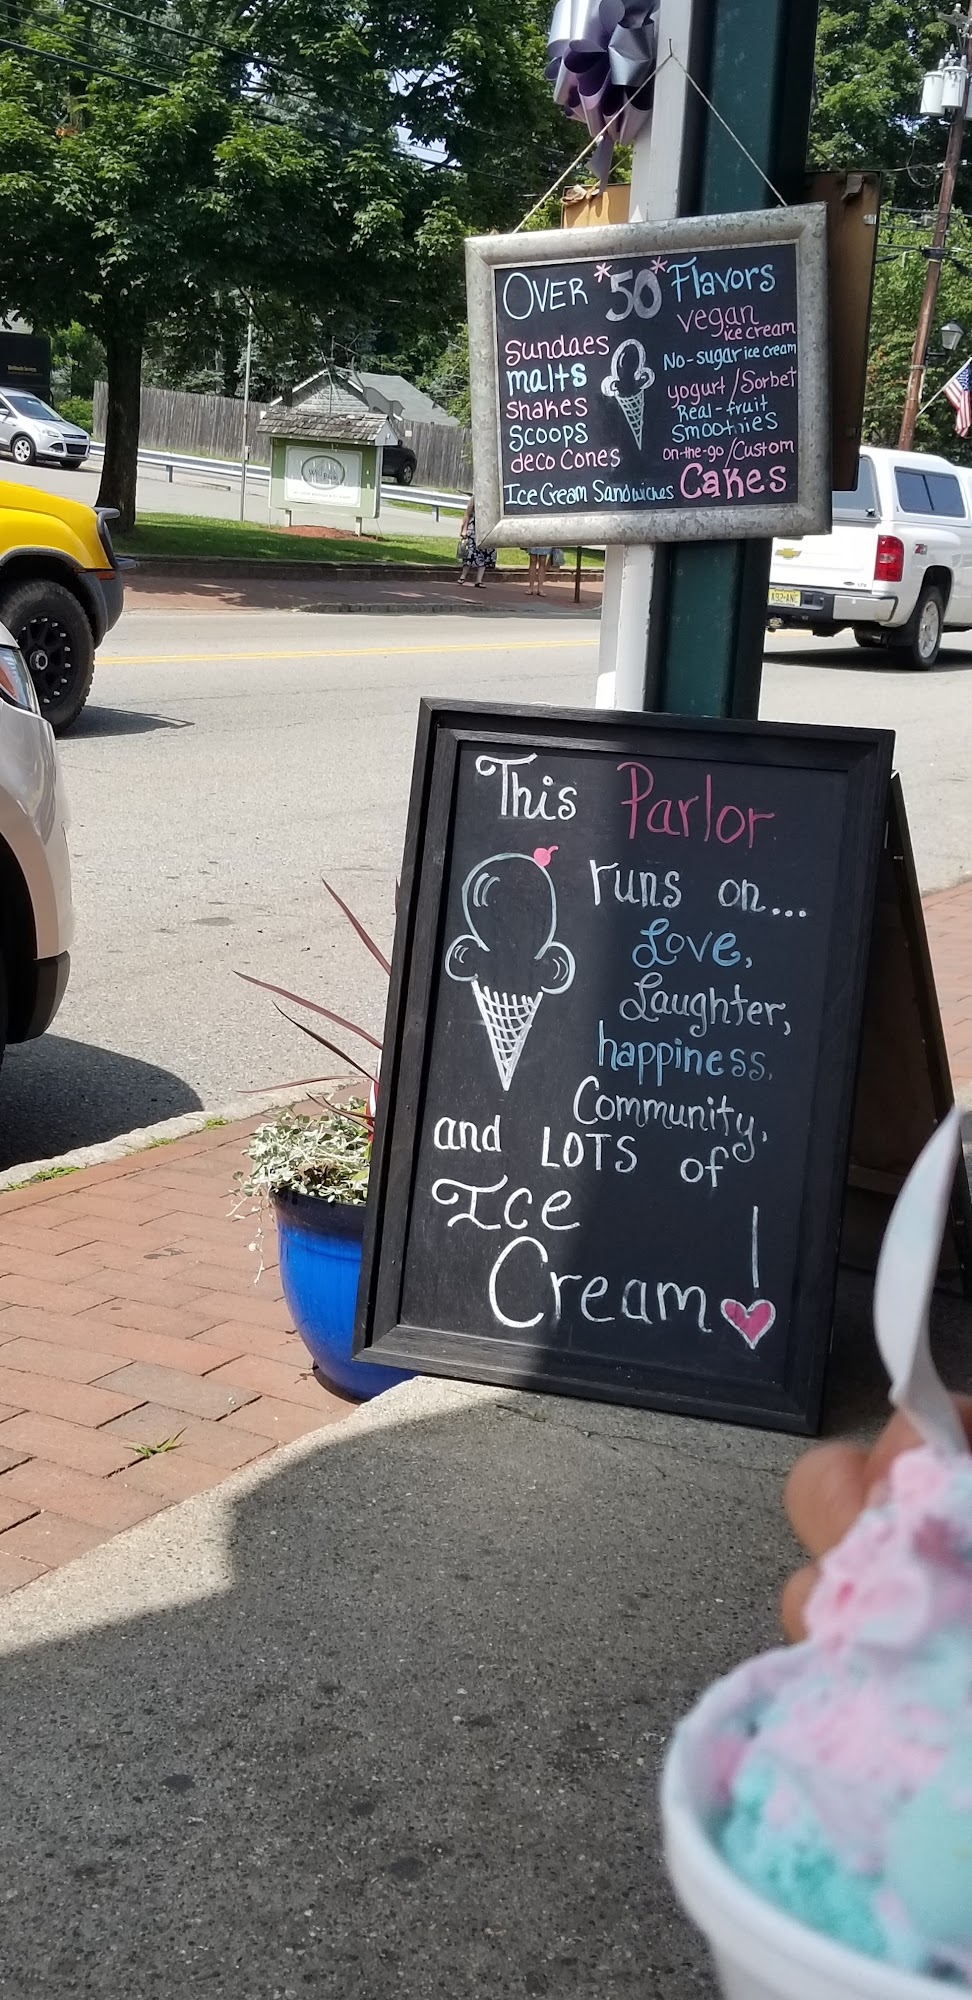 OVER *50* Flavors
vegan
ice cream
Sundaes
No-sugar ice cream
malts
yogurt/Sorbet
shakes
Real-fruit
Scoops
Smoothies
deco Cones
on-the-go/Custom
Ice Cream Sandwiches
Cakes
This Parlor
runs on...
Love,
Laughter,
happiness,
Community,
and LOTS of
Ice
Cream!